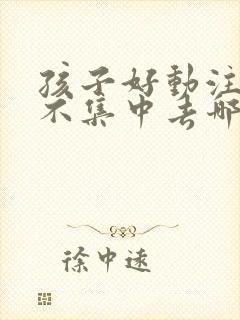 孩子好動注
不集中去哪
徐中遠